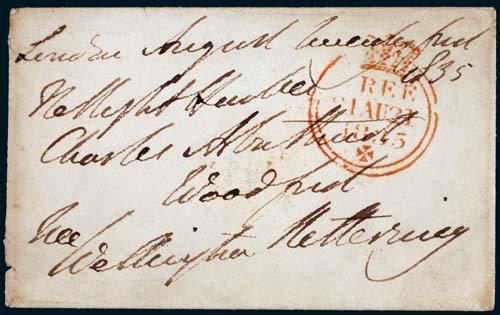 London August twenty first
1835
The Right Honble
Charles Arbuthnot
Woodford
Kettering
Wellington
REE
1AU21
1835